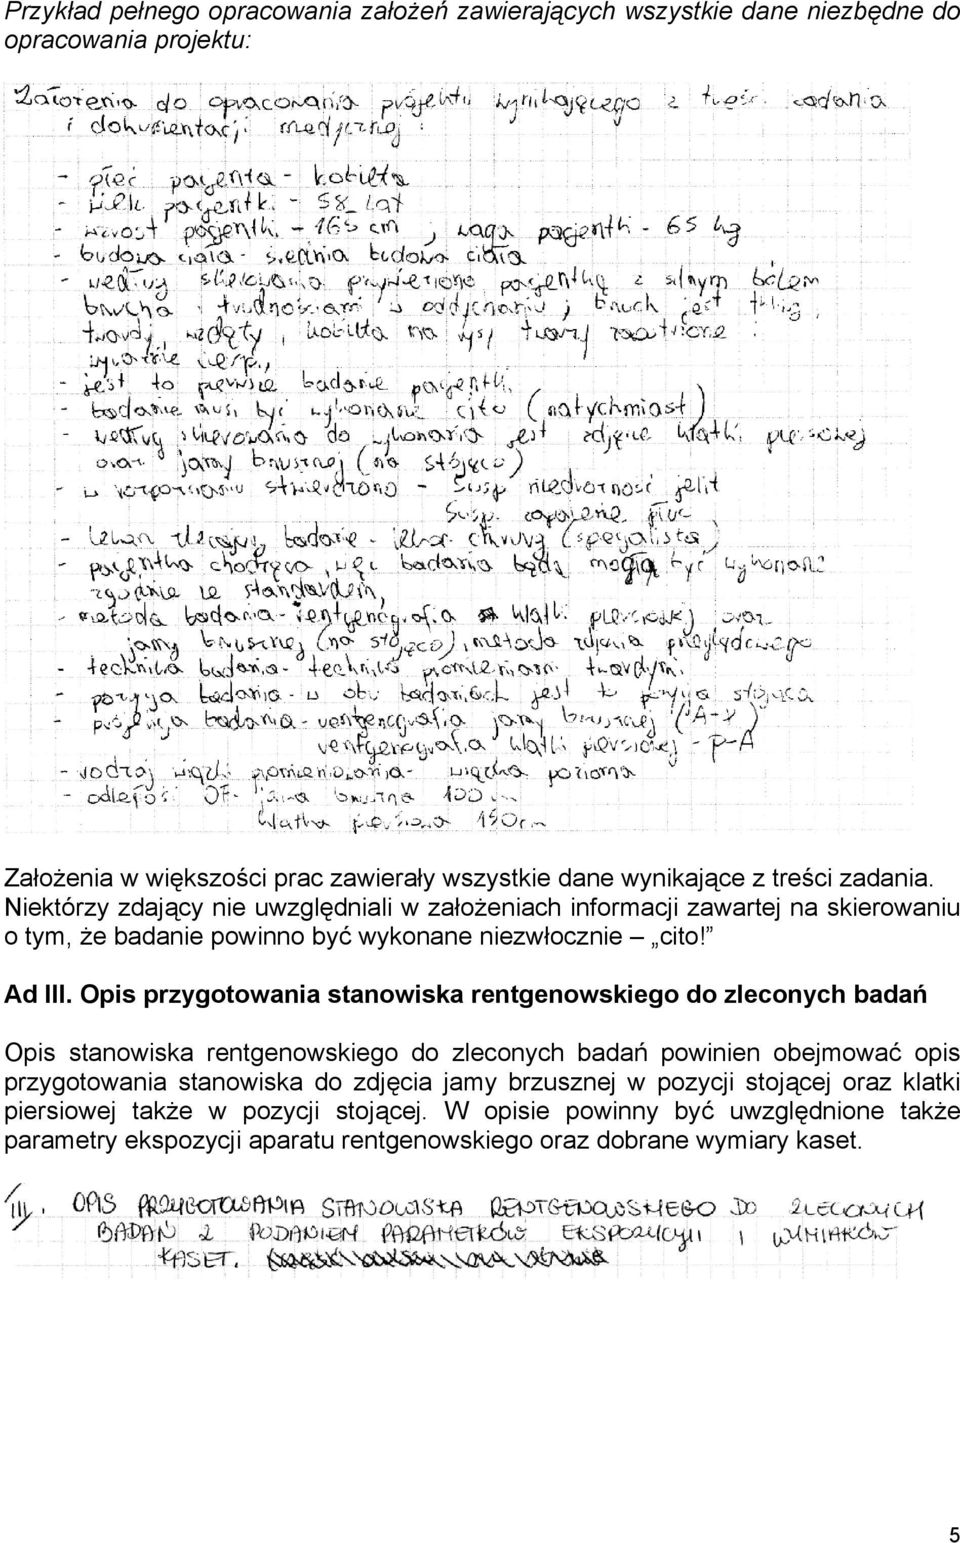 Przykład pełnego opracowania założeń zawierających wszystkie dane niezbędne do
opracowania projektu:
Założenia do opracowania projektu wynikającego z treści zadania
i dokumentacji medycznej:
- płeć pacjenta - kobieta
- wiek pacjentki - 58 lat
- wzrost pacjentki - 165 cm, waga pacjentki - 65 kg
- budowa ciała - średnia budowa ciała
- według skierowania przywieziono pacjentkę z silnym bólem
brzucha i trudnościami w oddychaniu; brzuch jest tkliwy,
twardy, wzdęty, kobieta ma rysy twarzy zaostrzone
wyraźnie cierp.,
- jest to pierwsze badanie pacjentki,
- badanie musi być wykonane cito (natychmiast)
- według skierowania do wykonania jest zdjęcie klatki piersiowej
oraz jamy brzusznej (na stojąco)
- w rozpoznaniu stwierdzono - Susp. niedrożność jelit
Susp. zapalenie płuc
- lekarz zlecający badanie - lekarz chirurg (specjalista)
- pacjentka chodząca, więc badania będą mogły być wykonane
zgodnie ze standardem,
- metoda badania - rentgenografia klatki piersiowej oraz
jamy brzusznej (na stojąco), metoda zdjęcia przeglądowego
- technika badania - technika promieniami twardymi.
- pozycja badania - w obu badaniach jest to pozycja stojąca
- projekcja badania - rentgenografia jamy brzusznej (A-P)
rentgenografia klatki piersiowej - P-A
- rodzaj wiązki promieniowania - wiązka pozioma
- odległość OF - jama brzuszna 100 cm
klatka piersiowa 150 cm
Założenia w większości prac zawierały wszystkie dane wynikające z treści zadania.
Niektórzy zdający nie uwzględniali w założeniach informacji zawartej na skierowaniu
o tym, że badanie powinno być wykonane niezwłocznie – „cito!”
Ad III. Opis przygotowania stanowiska rentgenowskiego do zleconych badań
Opis stanowiska rentgenowskiego do zleconych badań powinien obejmować opis
przygotowania stanowiska do zdjęcia jamy brzusznej w pozycji stojącej oraz klatki
piersiowej także w pozycji stojącej. W opisie powinny być uwzględnione także
parametry ekspozycji aparatu rentgenowskiego oraz dobrane wymiary kaset.
III. OPIS PRZYGOTOWANIA STANOWISKA RENTGENOWSKIEGO DO ZLECONYCH
BADAŃ Z PODANIEM PARAMETRÓW EKSPOZYCJI I WYMIARÓW
KASET.
5